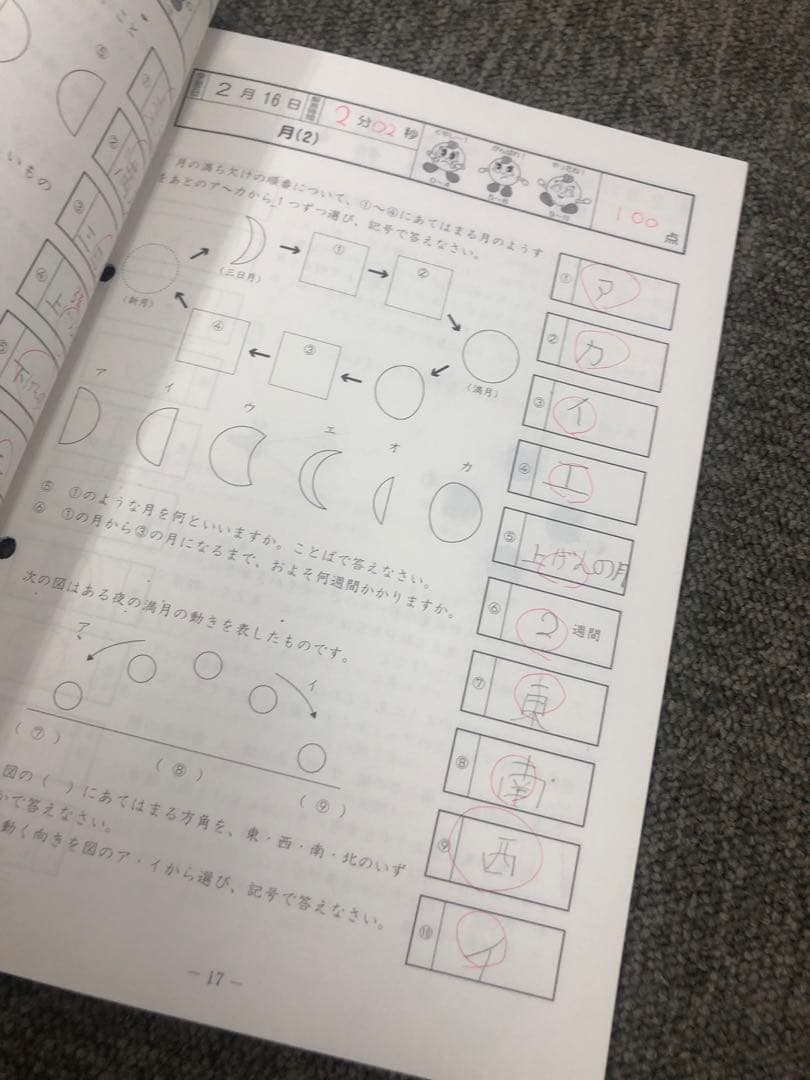 2月16日
2分02秒
月(2)
100点
0～4
5～8
9～10
月の満ち欠けの順番について、①～④にあてはまる月のようす
をあとのア～カから1つずつ選び、記号で答えなさい。
(新月)
(三日月)
①
②
(満月)
③
④
ア
イ
ウ
エ
オ
カ
⑤ ①のような月を何といいますか。ことばで答えなさい。
⑥ ①の月から③の月になるまで、およそ何週間かかりますか。
次の図はある夜の満月の動きを表したものです。
ア
イ
(⑦)
(⑧)
(⑨)
図の( )にあてはまる方角を、東・西・南・北のいず
かで答えなさい。
動く向きを図のア・イから選び、記号で答えなさい。
① ア
② カ
③ イ
④ エ
⑤ 上げんの月
⑥ 2週間
⑦ 東
⑧ 南
⑨ 西
⑩ イ
－17－